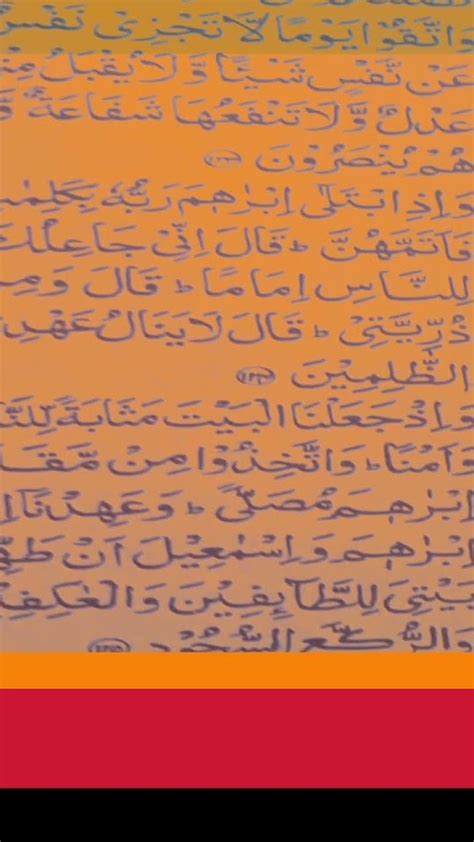 وَاتَّقُوْا يَوْمًا لَّا تَجْزِىْ نَفْسٌ
عَنْ نَّفْسٍ شَيْـًٔا وَّلَا يُقْبَلُ مِنْ
عَدْلٌ وَّلَا تَنْفَعُهَا شَفَاعَةٌ وَّ
هُمْ يُنْصَرُوْنَ
وَاِذِ ابْتَلٰٓى اِبْرٰهٖمَ رَبُّهٗ بِكَلِمٰتٍ
فَاَتَمَّهُنَّ ؕ قَالَ اِنِّىْ جَاعِلُكَ
لِلنَّاسِ اِمَامًا ؕ قَالَ وَمِنْ
ذُرِّيَّتِىْ ؕ قَالَ لَا يَنَالُ عَهْدِى
الظّٰلِمِيْنَ ﴿۱۲۴﴾
وَاِذْ جَعَلْنَا الْبَيْتَ مَثَابَةً لِّلنَّا
وَاَمْنًا ؕ وَاتَّخِذُوْا مِنْ مَّقَا
اِبْرٰهٖمَ مُصَلًّى ؕ وَعَهِدْنَاۤ اِ
اِبْرٰهٖمَ وَاِسْمٰعِيْلَ اَنْ طَهِّ
بَيْتِىَ لِلطَّآئِفِيْنَ وَالْعٰكِفِ
وَالرُّكَّعِ السُّجُوْدِ